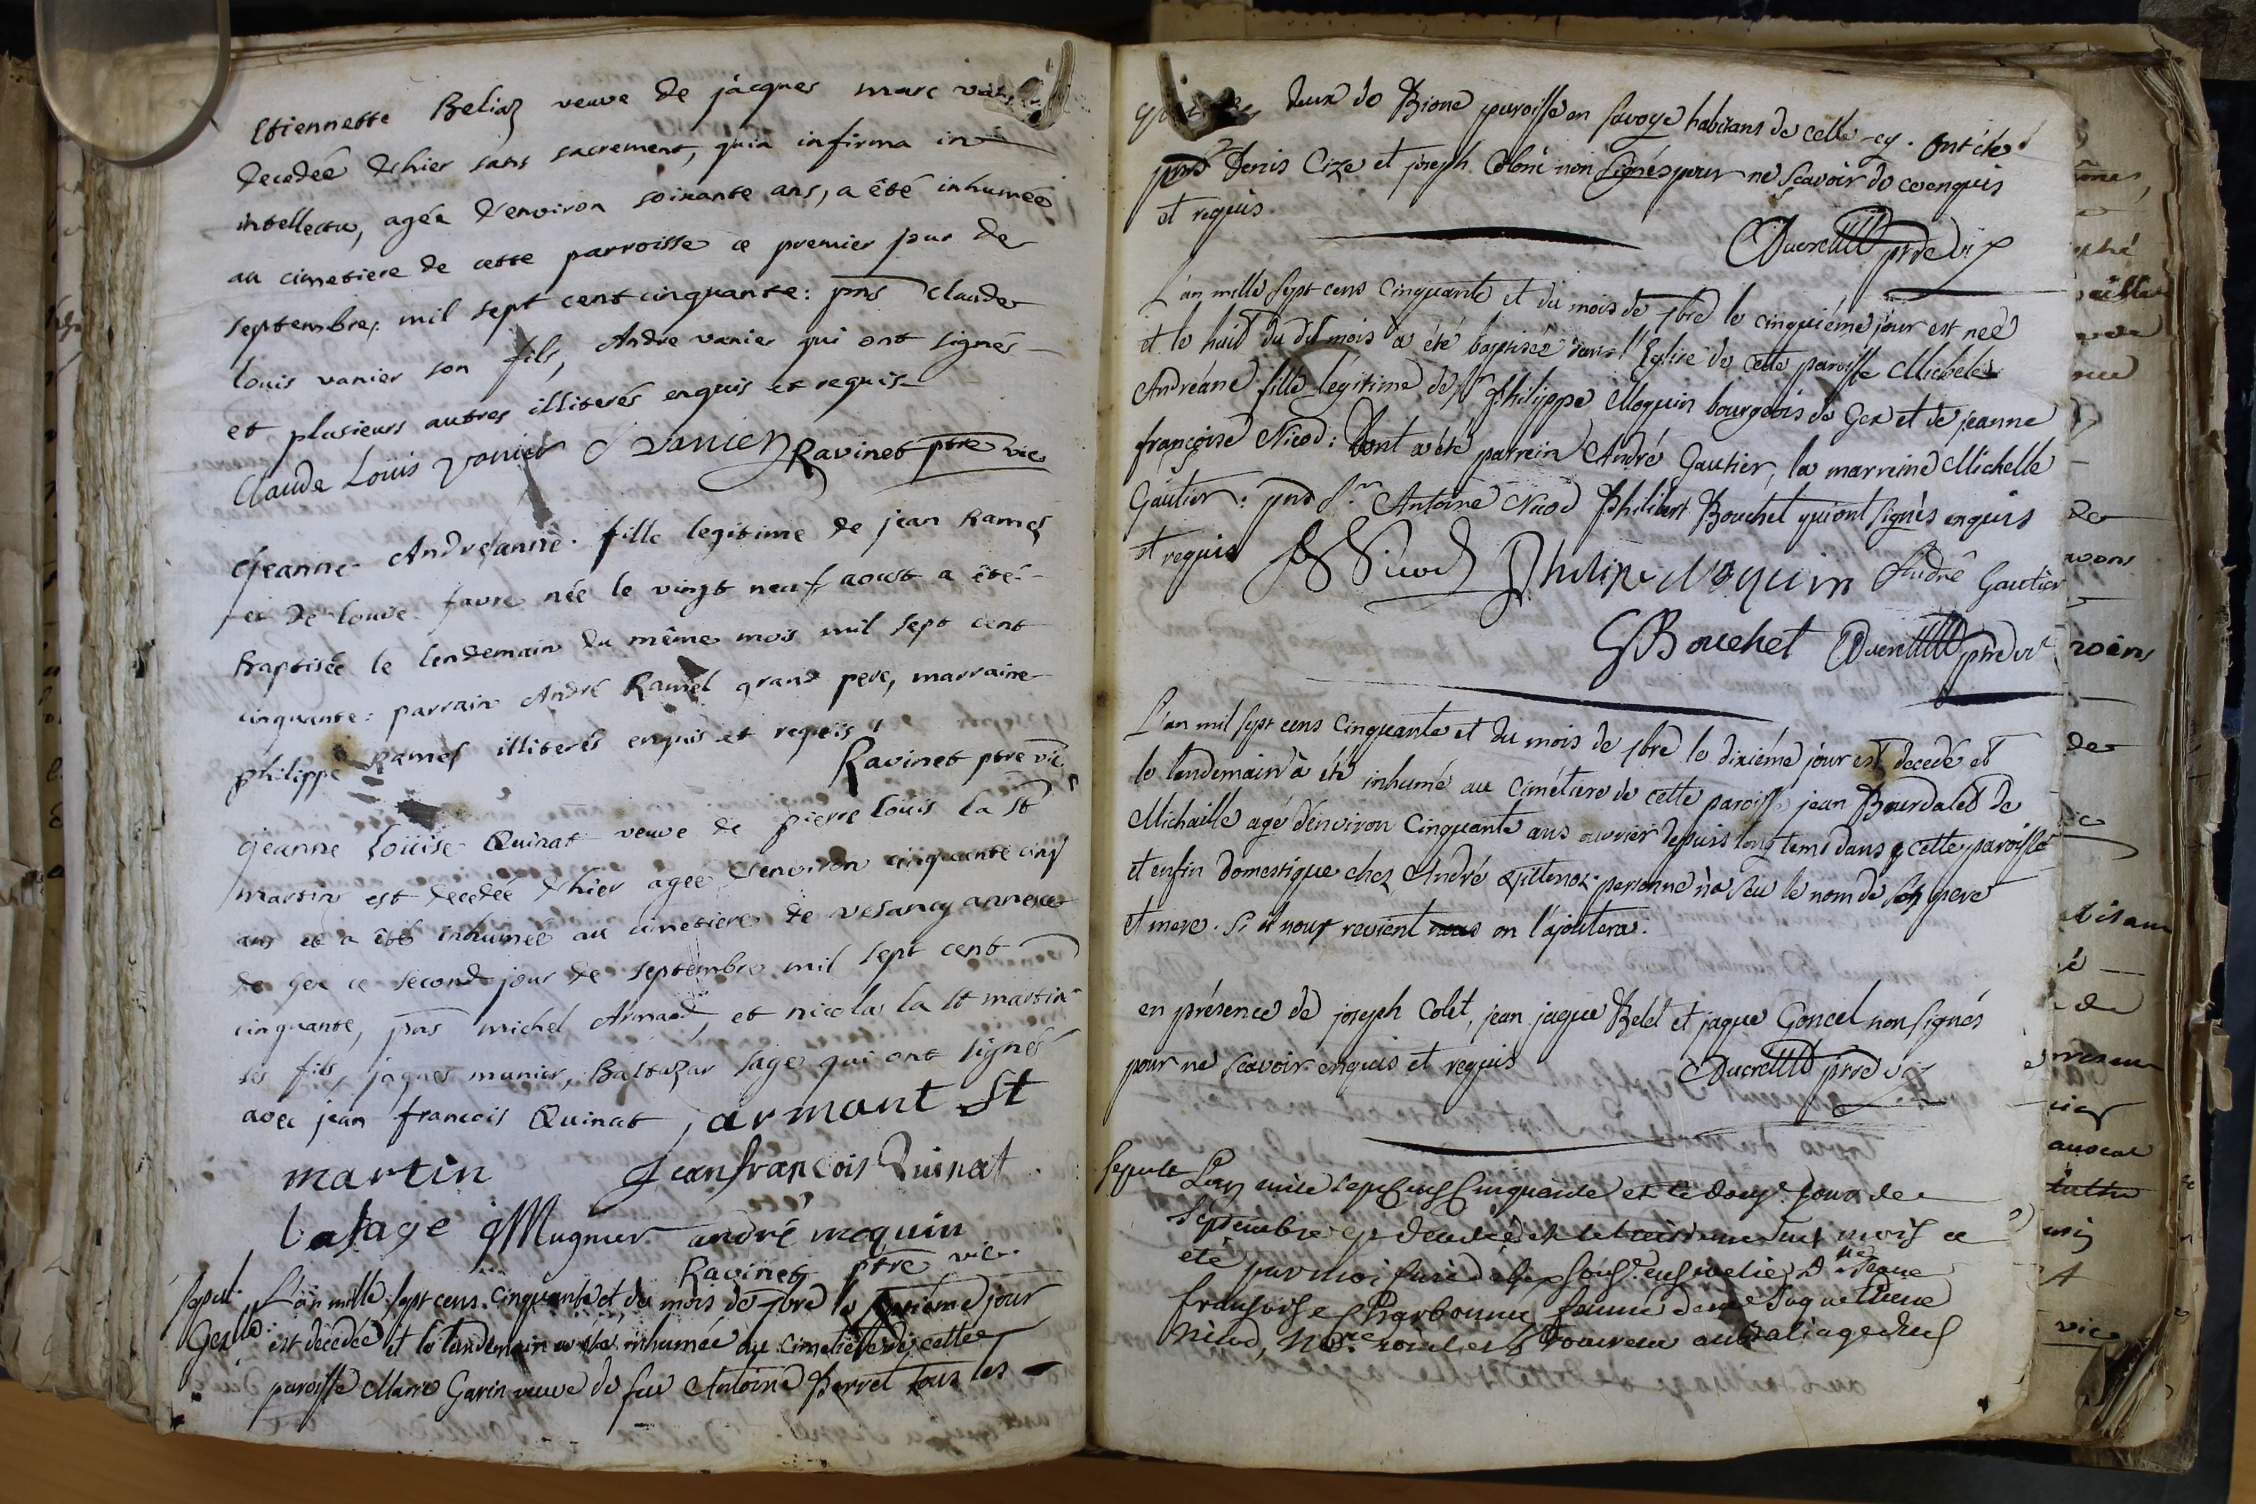 Etiennette Beliaz veuve de jâcques marc
decedée d'hier sans sacrement, quia infirma in
intellectu, agée d'environ soixante ans, a été inhumée
au cimetiere de cette parroisse ce premier jour de
septembre, mil sept cent cinquante: pnts Claude
louis vanier son fils, André vanier qui ont signés
et plusieurs autres illiterés enquis et requis
Claude Louis vanier vanier Ravinet ptre vic
Jeanne Andréanne fille legitime de jean Ramel
et de louise favre née le vingt neuf aoust a été
baptisée le lendemain du même mois mil sept cent
cinquante: parrain André Ramel grand pere, marraine
philippe Ramel illiterés enquis et requis
Ravinet ptre vic
Jeanne Loüise Quinat veuve de pierre louis la st
martin est decedée d'hier agée d'environ cinquante cinq
ans et a été inhumée au cimetiere de vesancy annexe
de gex ce second jour de septembre mil sept cent
cinquante, pnts michel Armand, et nicolas la st martin
ses fils, jaques munier, Baltazar sage qui ont signés
avec jean francois Quinat, armant st
martin Jeanfrancois Quinat
Lasage Mugnier andré moquin
Ravinet ptre vic
sepul. L'an mille sept cens cinquante et du mois de 7bre le jour
Gex est décédée et le landemain a été inhumée au cimetiere de cette
paroisse Marie Garin veuve de feu Antoine Perret tous les
deux de Bione paroisse en Savoye habitans de celle-cy. Ont été
pnts Denis Cize et joseph Colont non signés pour ne sçavoir de ce enquis
et requis.
Ducrettt ptre vic
L'an mille sept cens cinquante et du mois de 7bre le cinquiéme jour est neé
et le huit du dit mois à été baptisée dans l'Eglise de cette paroisse Michele
Andréane fille légitime de Sr Philippe Moquin bourgeois de Gex et de jeanne
françoise Nicod: Dont a été parrein André Gautier, la marreine Michelle
Gautier: pnts Sr. Antoine Nicod Philibert Bouchet qui ont signés enquis
et requis Nicod Philipe Moquin André Gautier
G Bouchet Ducrettt ptre vic
L'an mil sept cens cinquante et du mois de 7bre le dixiéme jour est decedé et
le lendemain à été inhumé au cimétiere de cette paroisse jean Bourdalet de
Michaille agé d'environ cinquante ans ouvrier depuis long tems dans cette paroisse
et enfin domestique chez André personne n'a scu le nom de son pere
et mere. Si il nous revient nous on l'ajoutera.
en présence de joseph Colet, jean jaque Belet et jaque Goncel non signés
pour ne scavoir enquis et requis Ducrettt ptre vic
sepult L'an mille sept cens cinquante et le jour de
septembre est decedée et le treizieme du mois a
eté par moi curé de Gex sous. ensevelie Dlle Jeanne
fransoise Charbonnet femme de
Nicod, Nore au baliage de